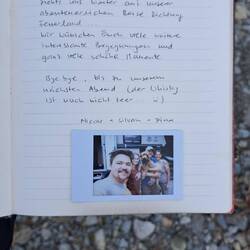 weiter auf unserer
abenteuerlichen Reise Richtung
Feuerland ...
Wir wünschen Euch viele weitere
interessante Begegnungen und
ganz viele schöne Momente.
Bye bye, bis zu unserem
nächsten Abend (der Whisky
ist noch nicht leer :)